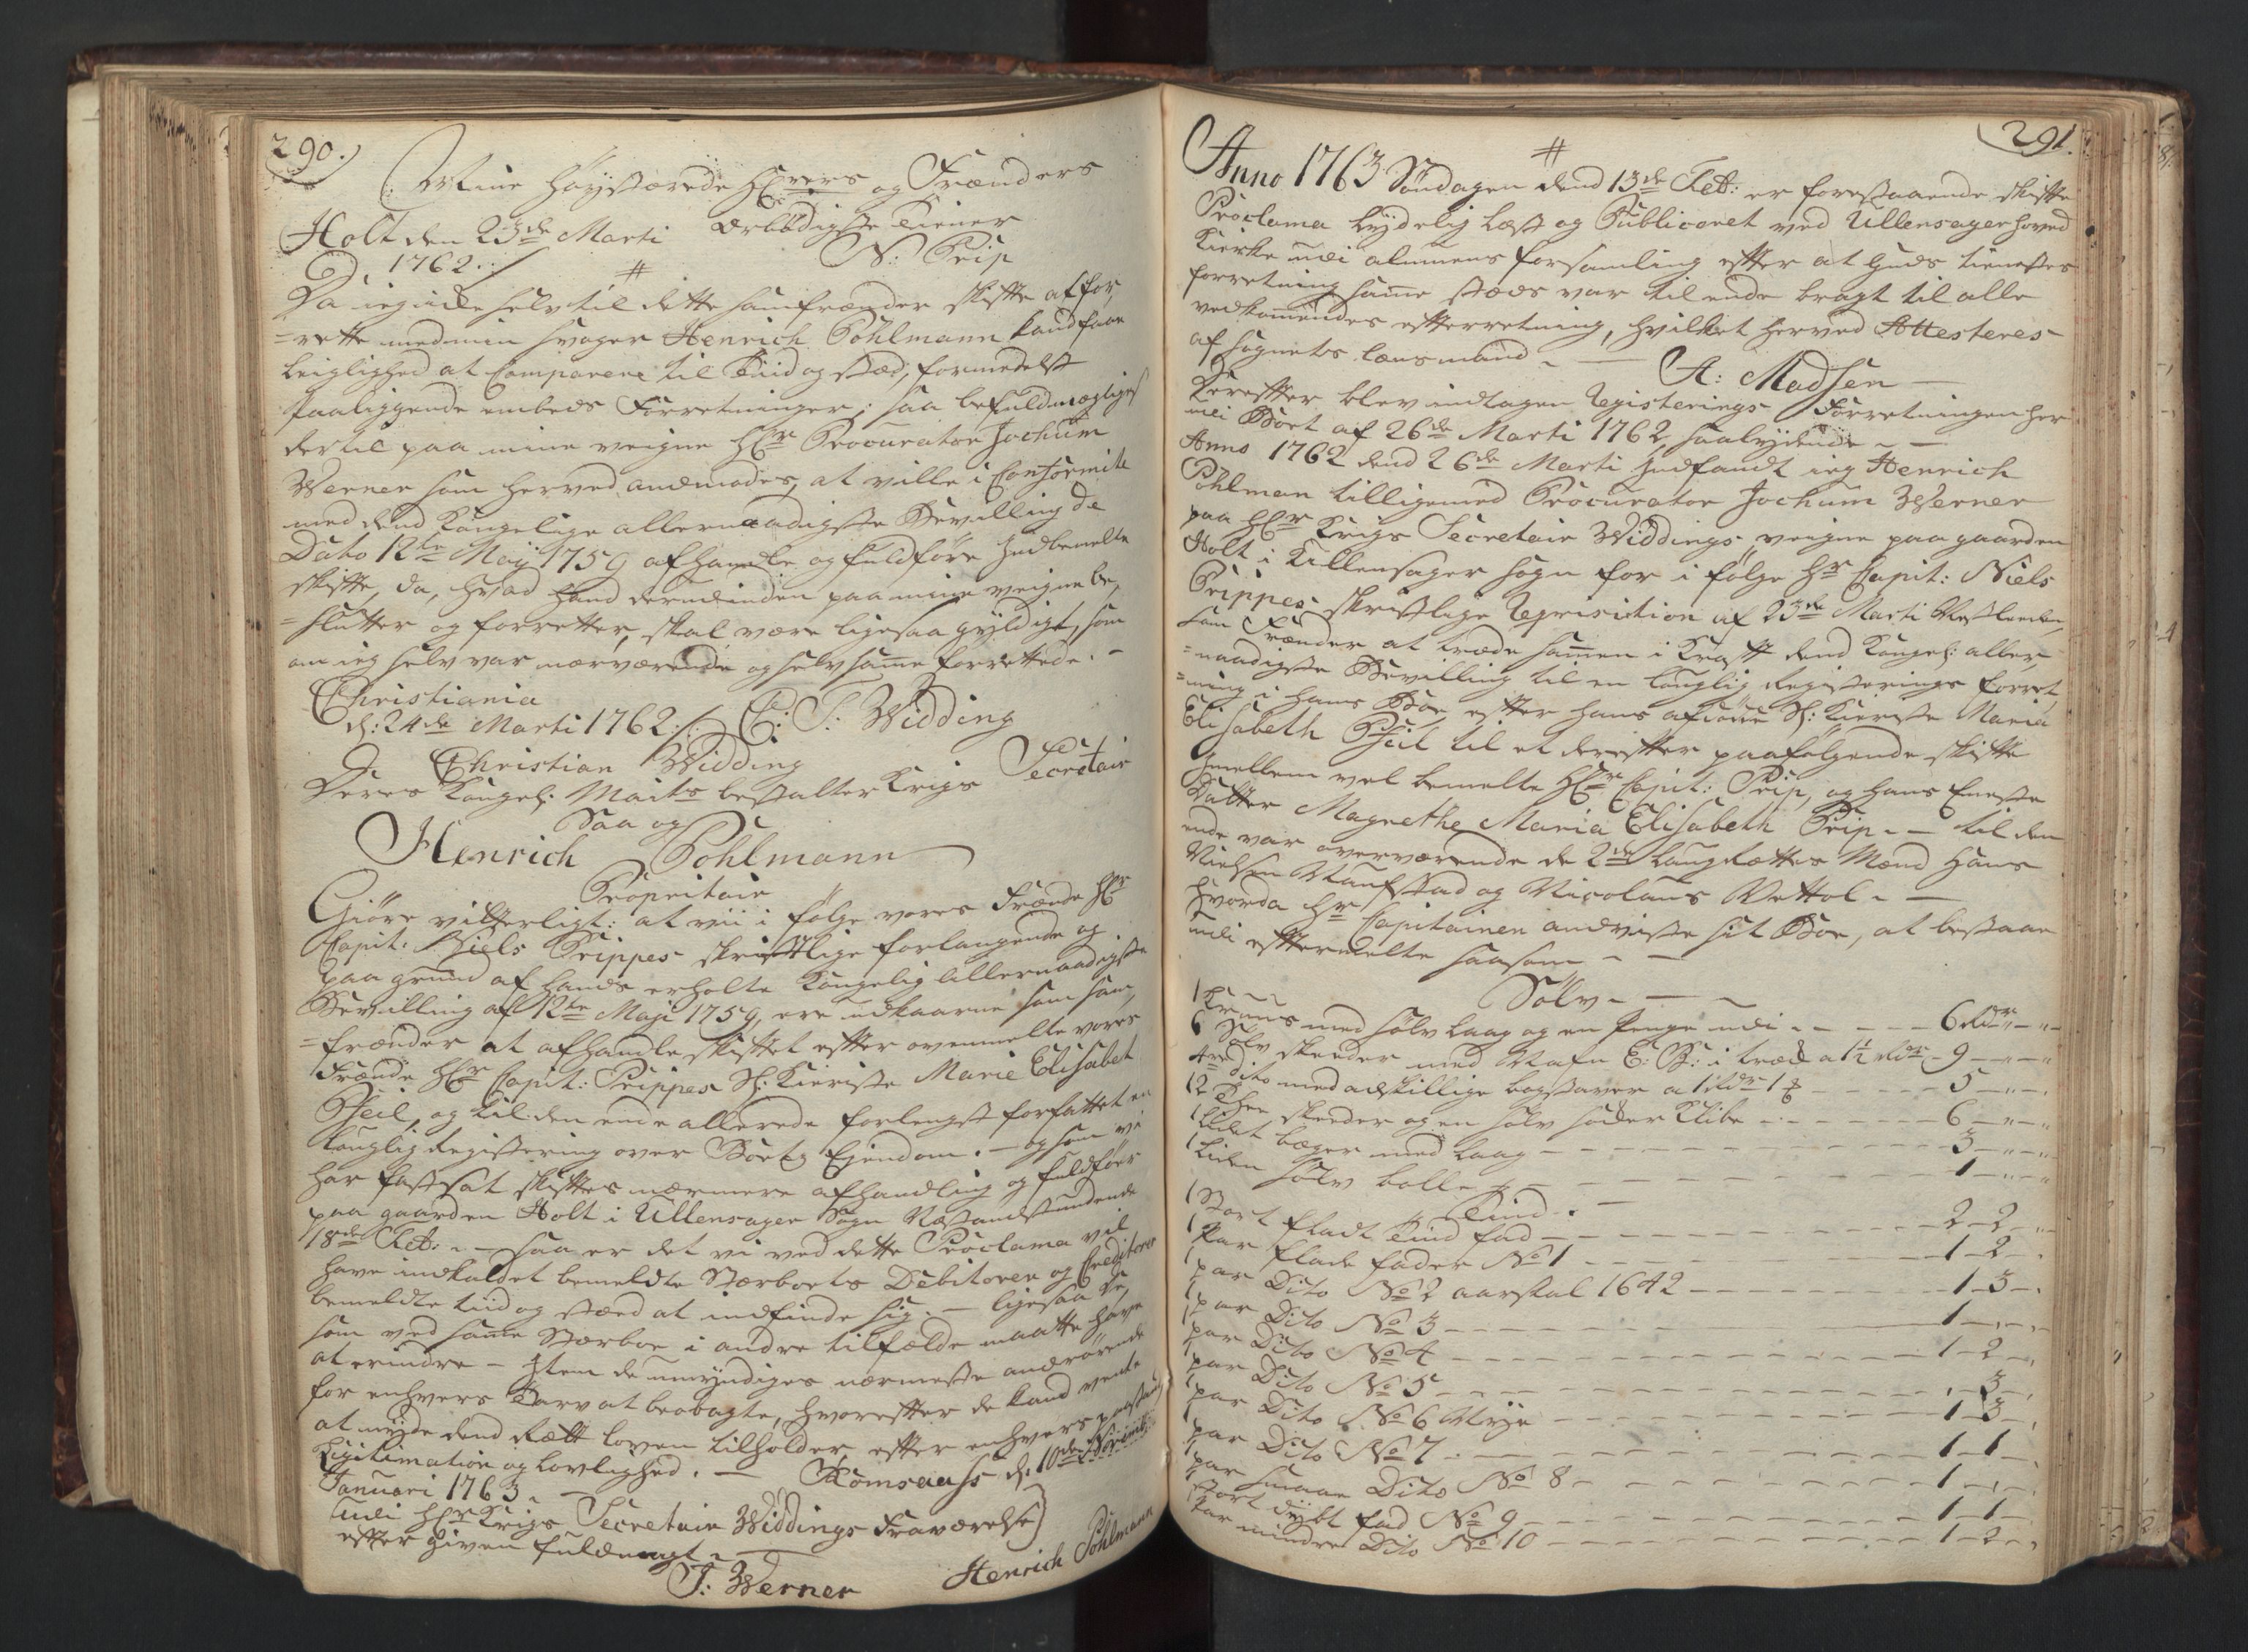 290.
Mine høystærede Hrers og Frænders
Holt den 23de Marti ærbødigste Tiener
1762 ./. N: Prip
#
Da ieg icke selv til dette samfrænder skifte at for,
=rette med min Svoger Henrich Pohlmann kand faae
leiglighed at Comparere til Tiid og stæd, formedelst
paaliggende embeds Forretninger; saa befuldmægtiges
dertil paa mine veigne Hr Procurator Jochum
Werner som herved anmodes, at ville i Conformite
med dend Kongelige allernaadigste Bevilling De
Dato 12te Maij 1759 afhandle og fuldføre Indbemelte
skifte, da, hvad hand derudinden paa mine veigne be,
=slutter og forretter, skal være ligesaa gyldigt, som
om ieg selv var nærværende og selv samme forrettede. -
Christiania
d: 24de Marti 1762 ./. C: F: Widding
Christian Widding
Deres Kongel: Maits bestalter Krigs Secretair
Saa og
Henrich Pohlmann
Propritair
Giöre vitterligt: at vii i følge vores Frænde Hr
Capit: Niels Prippes skriftlige forlangende og
paa grund af hands erholte Kongelig allernaadigste
Bevilling af 12te Maji 1759, ere udkaarne som sam,
=frænder at afhandle skiftet efter ovenmelte vores
Frænde Hr Capit: Prippes Sl: Kieriste Marie Elisabet
Pfeil, og til den ende allerede forlengst forfattet en
Lovglig Registering over Boets Ejendom. - og som vi
har fastsat skiftes nærmere afhandling og fuldføer
paa gaarden Holt i Ullensager Sogn Næstanstundende
18de Feb: - saa er det vi ved dette Proclama vil
have indkaldet bemeldte Stærboets Debitorer og Creditorer
bemeldte tiid og stæd at indfinde sig - ligesaa de,
som ved samme Stærboe i andre tilfælde maatte have
at erindre - Item de umyndiges nærmeste andrørende
for enhvers Tarv at beobagte, hvorefter de kand vente
at nyde dend Rætt loven tilholder efter enhvers paastand
Legitimation og lovlighed. - Romsaass d: 10de
Januari 1763.
Udi Hr Krigs Secretair Widdings Fraværelse
efter given fuldmagt
J: Werner Henrich Pohlmann
291.
#
Anno 1763 Søndagen dend 13de Feb: er forestaaende skifte
Proclama lydelig læst og Publiceret ved Ullensager hoved
Kierke udi almuens forsamling efter at Guds tienestes
forretning samme stæds var til ende bragt til alle
vedkommendes efterretning, hvilket herved Attesteres
af sognets lænsmand - A: Madsen
Derefter blev indtagen Registerings Forretningen her
udi Boet af 26de Marti 1762, saalydende -
Anno 1762 dend 26de Marti Indfandt ieg Henrich
Pohlman tilligemed Procurator Jochum Werner
paa Hr Krigs Secretair Widdings veigne paa gaarden
Holt i Ullensager sogn for i følge Hr Capit: Niels
Prippes skriftlige Reqvisition af 23de Marti
som Frænder at træde sammen i Kraft dend Kongel: aller,
=naadigste Bevilling til en lovglig Registerings Forret,
=ning i hans Boe efter hans afdøde Sl: Kieriste Maria
Elisabeth Pfeil til et derefter paafølgende skifte
Imellem vel bemelte Hr Capit: Prip, og hans Eeneste
Datter Magrethe Maria Elisabeth Prip. - til den
ende var overværende de 2de Laug Rettes Mænd Hans
Nielsen Naufstad og Nicolaus Wettol -
hvorda Hr Capitainen andviste sit Boe, at bestaae
udi eftermelte saasom -
Sølv -
1 Kruus med sølv laag og en Penge udi - - - 6 Rdr - -
6 Sølv skeeder med Nafn E: P: i træk a 1½ Rdr - 9 - -
4re dito med adskillige bogstaver a 1 Rdr 1 - - - 5 - -
12 Thee skeeder og en sølv suker Klibe - - - 6 - -
1 lidet bæger med laag - - - 3 - -
1 liden sølv bolle - - - 1 - -
Tind. -
1 Stort fladt Tind fad - - - 2 - 2 -
1 Par flade fader No 1 - - - 1 - 2 -
1 par Dito No 2 aarstal 1642 - - - 1 - 3 -
1 par Dito No 3 - - - 1 - -
1 par Dito No 4 - - - 1 - 2 -
1 par Dito No 5 - - - - 3 -
1 par Dito No 6 Nye - - - 1 - 3 -
1 par Dito No 7 - - - 1 - 1 -
1 par smaae Dito No 8 - - - 1 - -
1 stort dybt fad No 9 - - - 1 - 1 -
1 par mindre Dito No 10 - - - 1 - 2 -